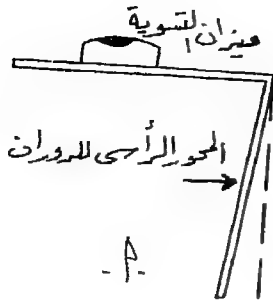 ميزان التسوية
المحور الرأسى للدوران
-أ-